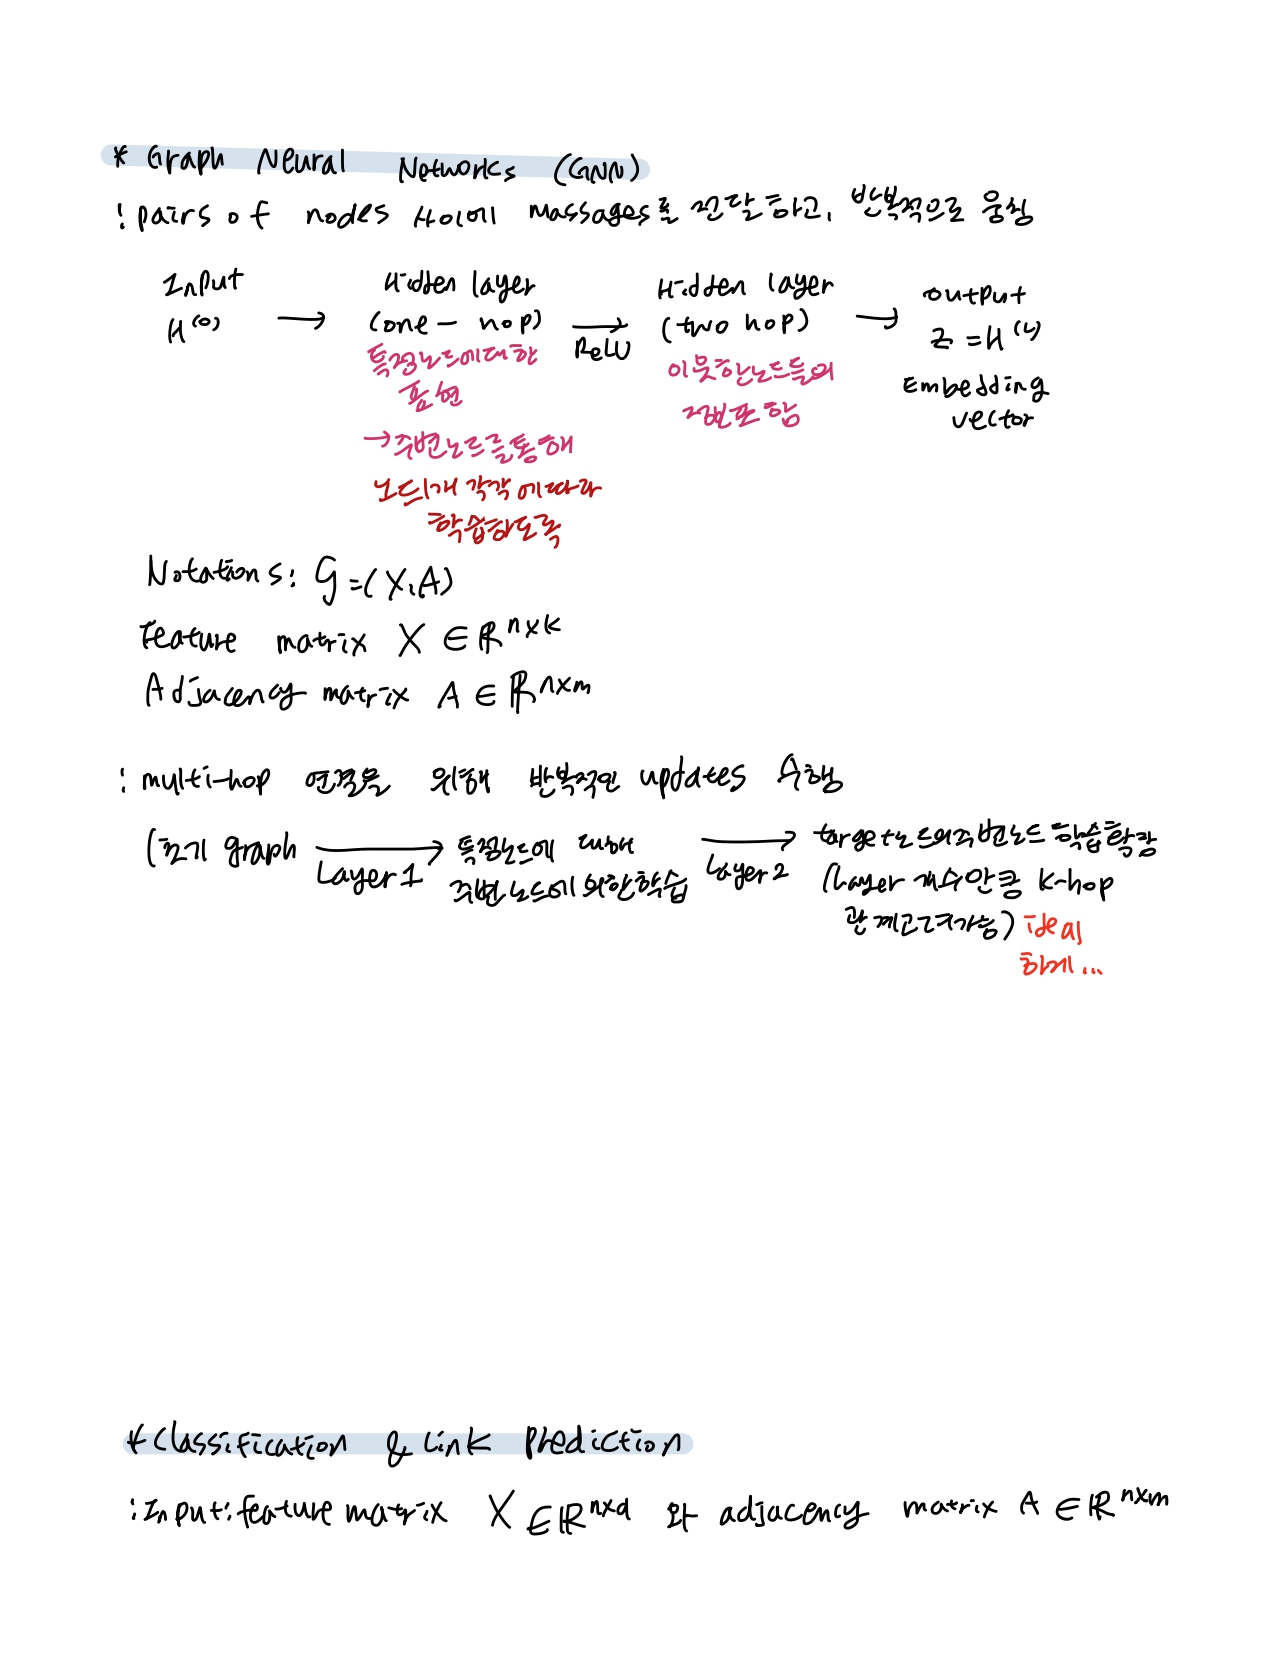 * Graph Neural Networks (GNN)
: pairs of nodes 사이에 massages를 전달하고, 반복적으로 뭉침
Input
H^(0)
→
Hidden layer
(one-hop)
특정노드에대한
표현
→주변노드를통해
노드1개 각각에따라
학습하도록
→
ReLU
Hidden layer
(two hop)
이웃한노드들의
정보포함
→
output
Z = H^(L)
Embedding
vector
Notations: G=(X,A)
Feature matrix X ∈ R^n×k
Adjacency matrix A ∈ R^n×m
: multi-hop 연결을 위해 반복적인 updates 수행
(초기 graph → 특정노드에 대해 → target노드의주변노드 학습확장
Layer1 주변노드에의한학습 Layer2 (Layer 개수만큼 K-hop
관계고려가능) ideal
하게...
* Classification & Link Prediction
: Input: feature matrix X ∈ R^n×d 와 adjacency matrix A ∈ R^n×m